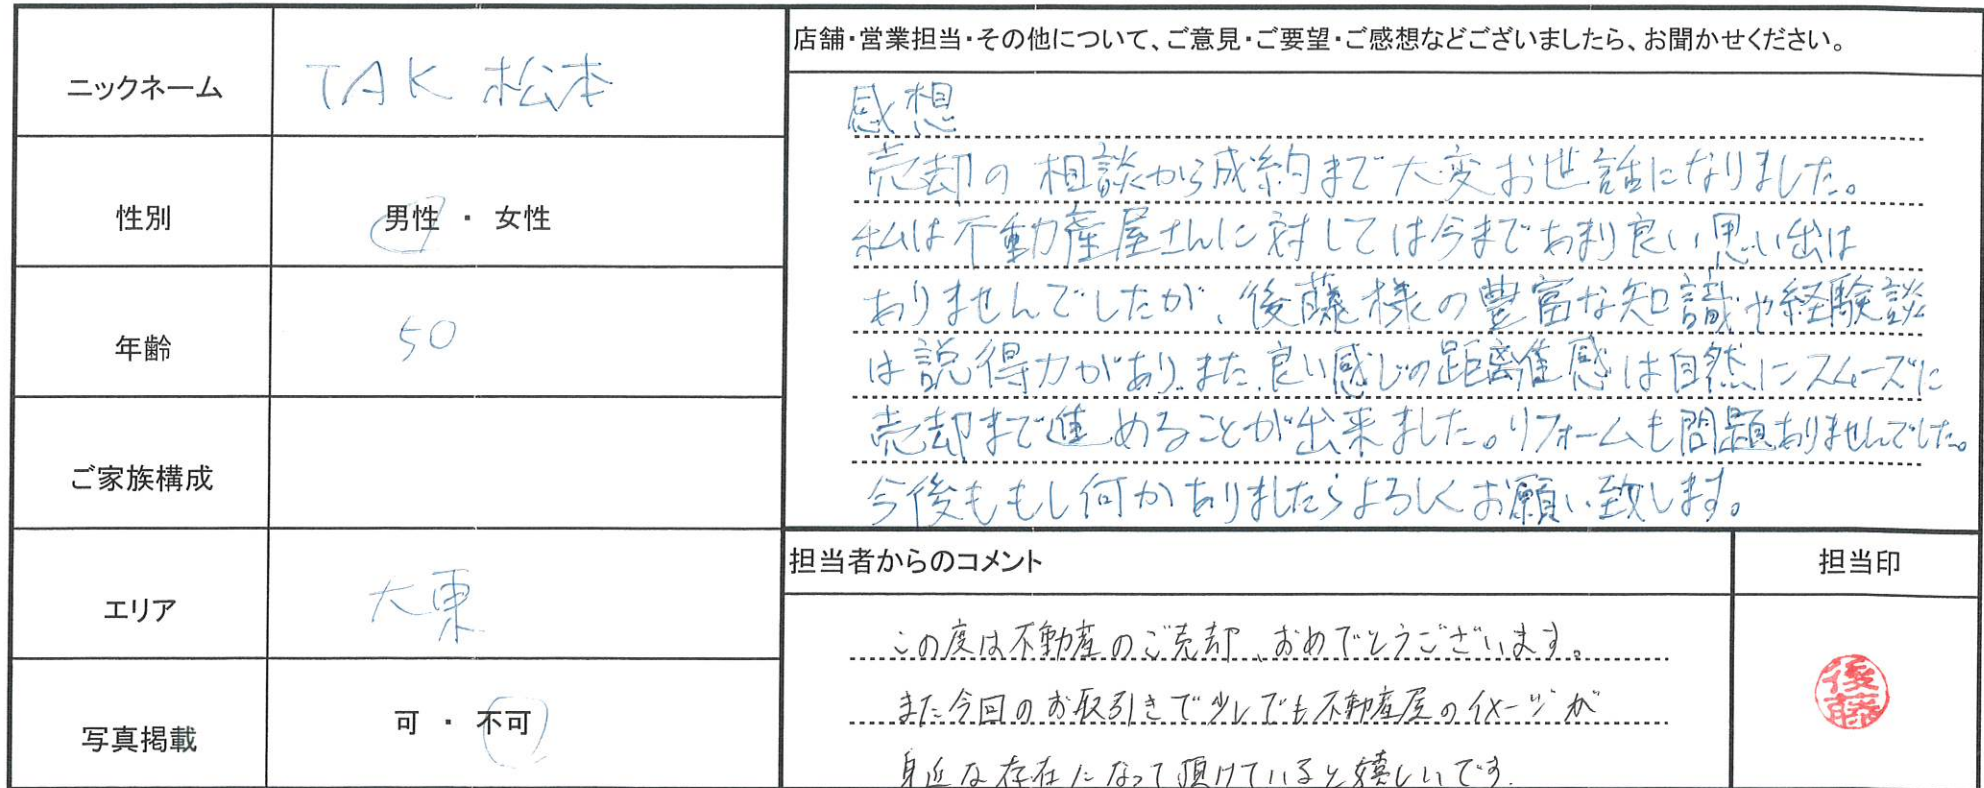 ニックネーム
TAK 松本
性別
男性 ・ 女性
年齢
50
ご家族構成
エリア
大東
写真掲載
可 ・ 不可
店舗・営業担当・その他について、ご意見・ご要望・ご感想などございましたら、お聞かせください。
感想
売却の相談から成約まで大変お世話になりました。
私は不動産屋さんに対しては今まであまり良い思い出は
ありませんでしたが、後藤様の豊富な知識や経験談
は説得力があり、また、良い感じの距離感は自然にスムーズに
売却まで進めることが出来ました。リフォームも問題ありませんでした。
今後ももし何かありましたらよろしくお願い致します。
担当者からのコメント
この度は不動産のご売却、おめでとうございます。
また今回のお取引きで少しでも不動産屋のイメージが
身近な存在になって頂けていると嬉しいです.
担当印
後藤